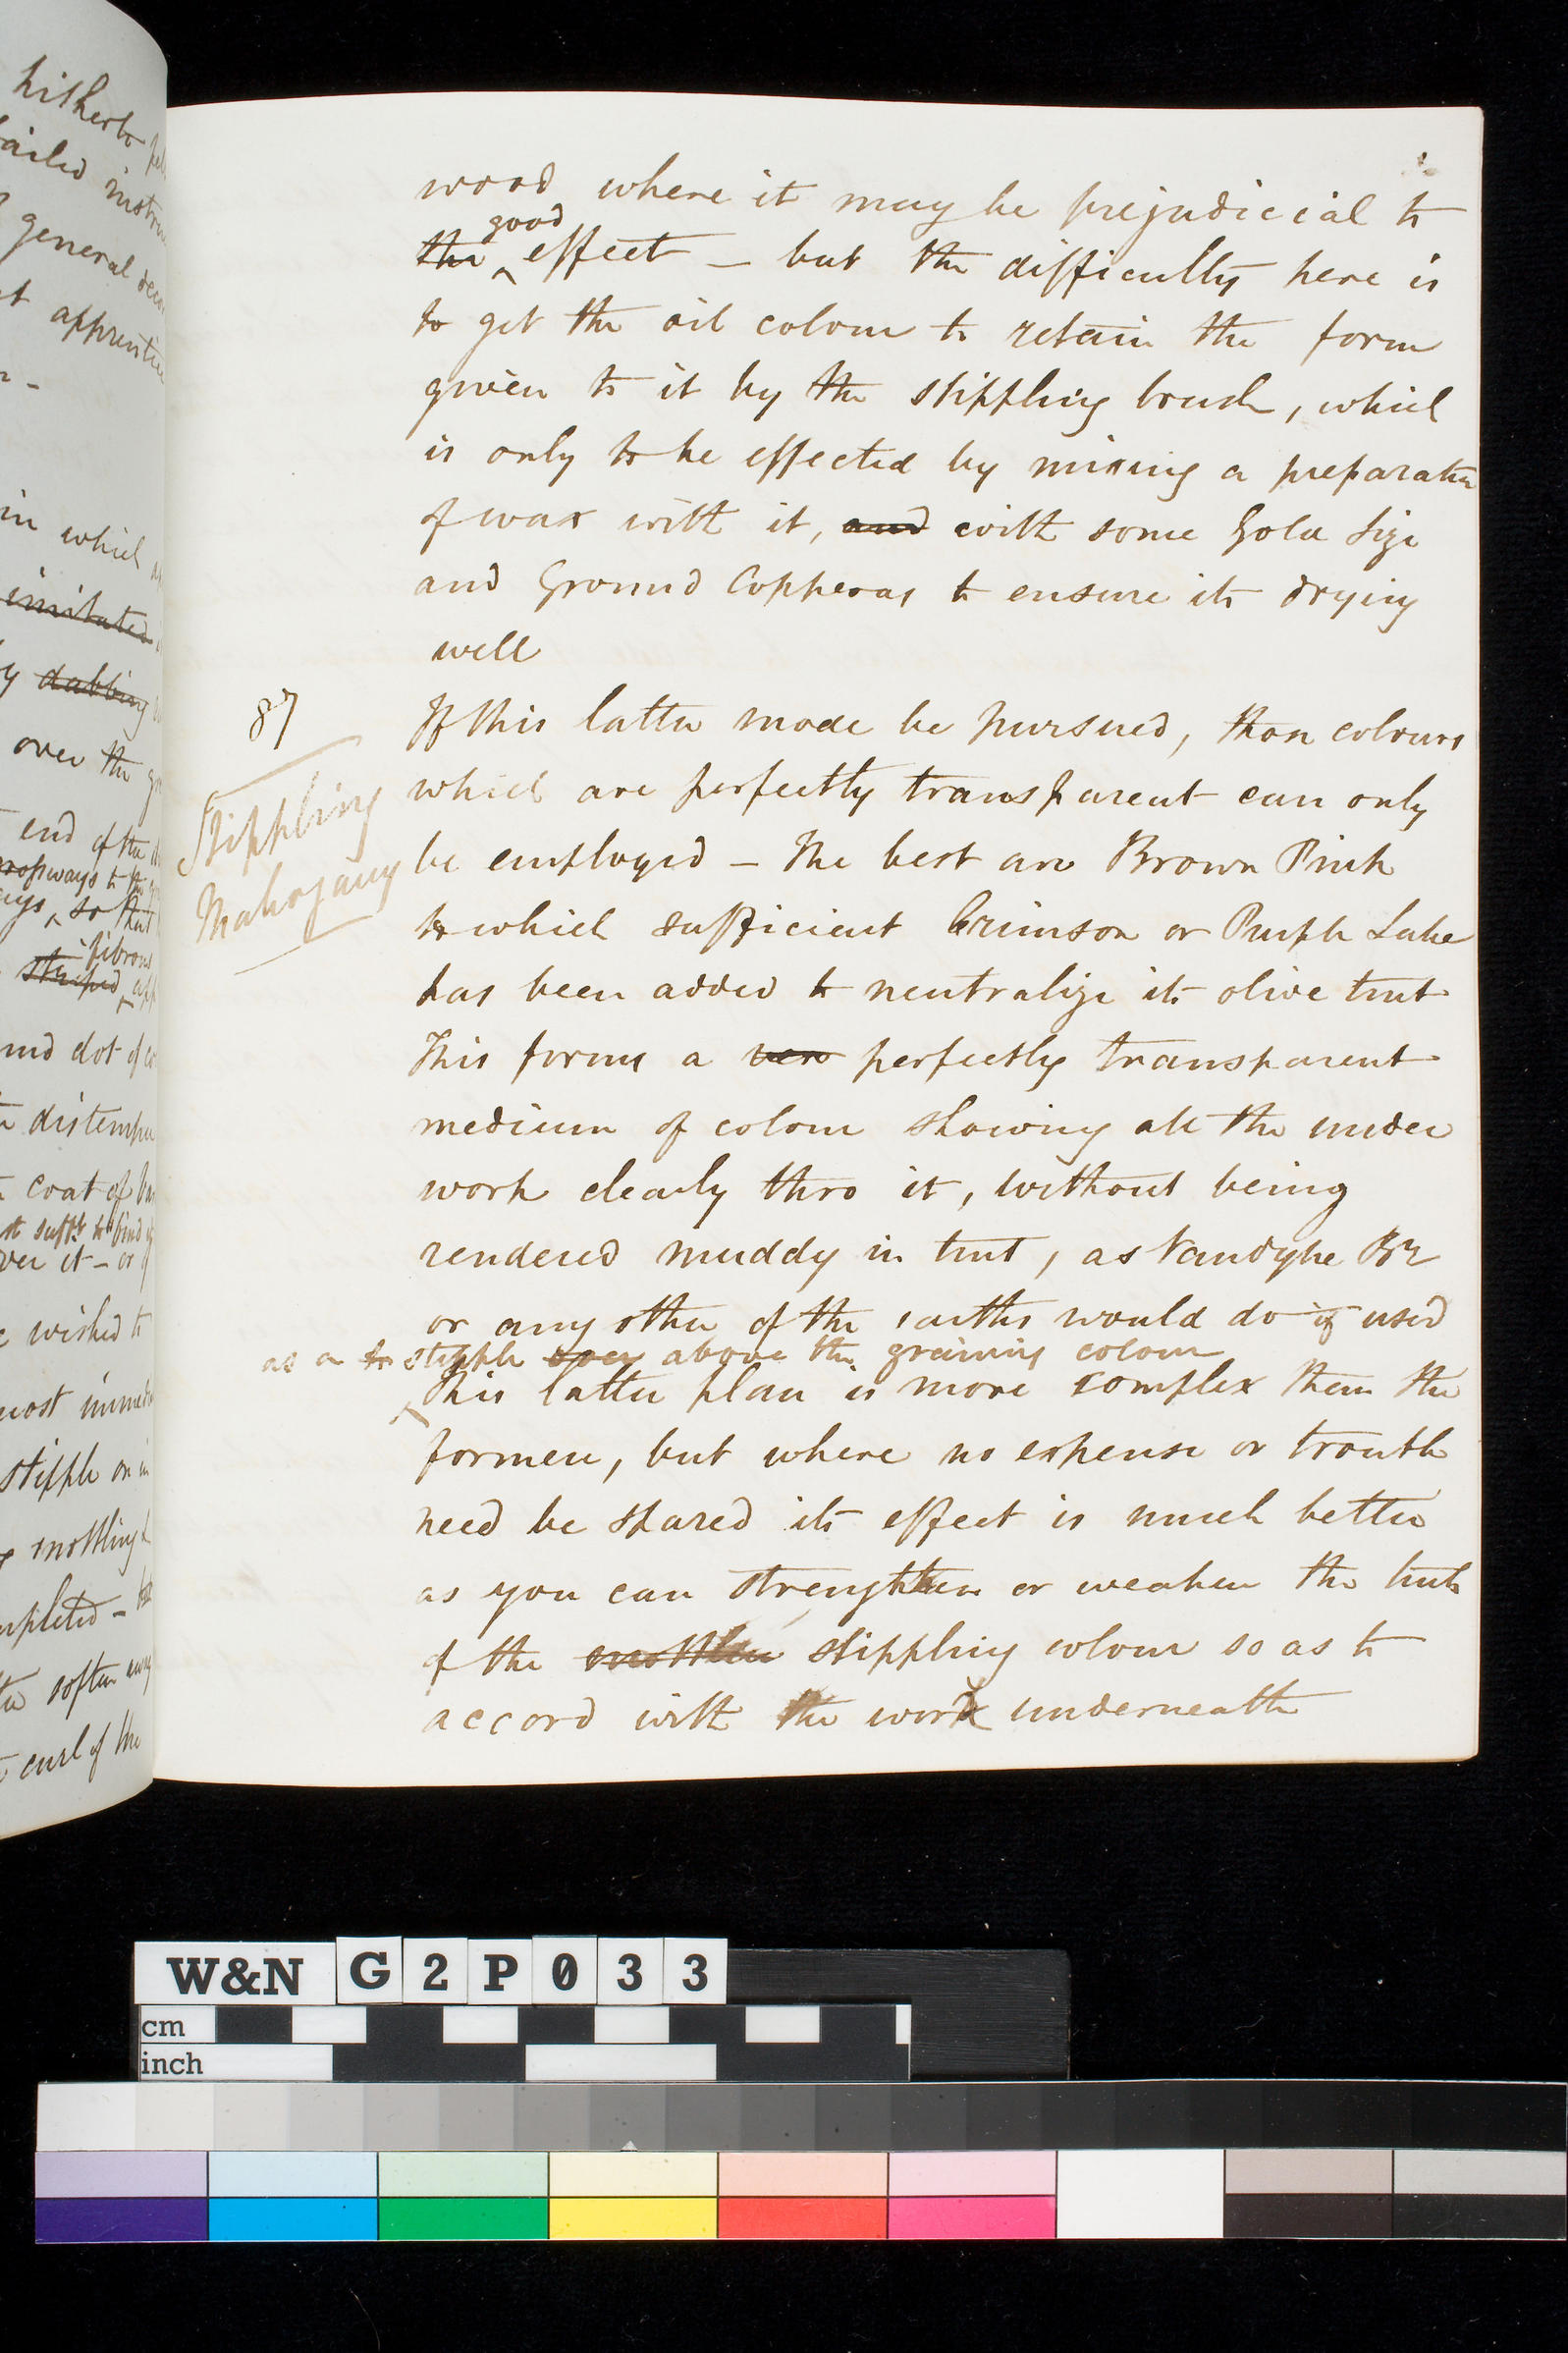 hitherto
failed instru
general deco
apprentice
in which
imitated
by dabbing
over the
end of the
crossways to the
so that
fibrous
striped
and dot of
distemper
coat of
st suffт to bind
over it - or
wished to
most immedi
stipple on
mottling
completed -
soften
curl of the
wood where it may be prejudicial to
good
the ‸ effect — but the difficulty here is
to get the oil colour to retain the form
given to it by the stippling brush, which
is only to be effected by mixing a preparation
of wax with it, and with some Gold Size
and Ground Copperas to ensure its drying
well
87
Stippling
Mahogany
If this latter mode be pursued, than colours
which are perfectly transparent can only
be employed — The best are Brown Pink
to which sufficient Crimson or Purple Lake
has been added to neutralize its olive tint
This forms a ver perfectly transparent
medium of colour showing all the under
work clearly thro it, without being
rendered muddy in tint, as Vandyke Br
or any other of the earths would do if used
as a to stipple over above the graining colour
‸ This latter plan is more complex than the
former, but where no expense or trouble
need be spared its effect is much better
as you can strenghten or weaken the tints
of the mottler stippling colour so as to
accord with the work underneath
W&N G2P033
cm
inch